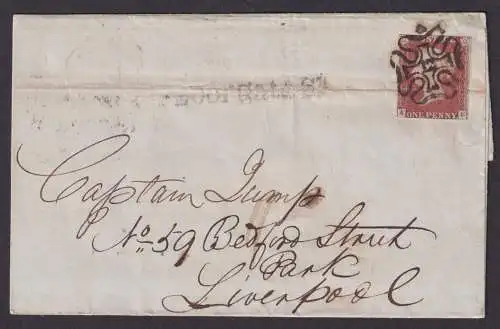 ONE PENNY
Captain Jump
No 59 Bedford Street
Park
Liverpool